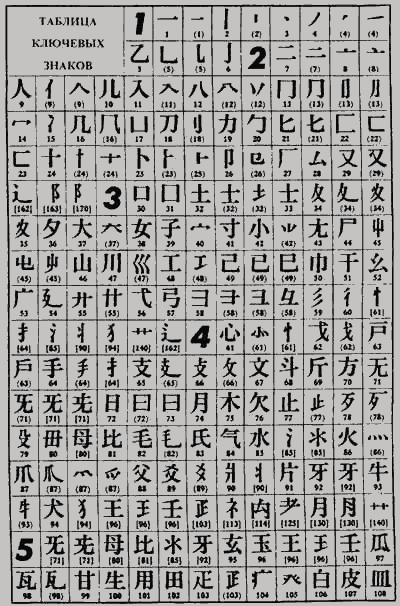 ТАБЛИЦА
КЛЮЧЕВЫХ
ЗНАКОВ
1 一 一 丨 丨 丶 丿
1 (1) 2 (2) 3 4 (4) (4)
乙 乚 亅 2 二 二 亠 亠
5 (5) (5) 6 7 (7) 8 (8)
人 亻 𠆢 儿 入 入 八 八 丷 冂 冂
9 (9) (9) 10 11 (11) 12 (12) (12) 13 (13) (13) (13)
冖 冫 几 几 凵 刀 刂 力 勹 匕 匕 匚 匚
14 15 16 (16) 17 18 (18) 19 20 21 (21) 22 (22)
匸 十 十 十 卜 卜 卜 卩 㔾 厂 厶 又 又
23 24 (24) (24) 25 (25) (25) 26 (26) 27 28 29 (29)
辶 阝 阝 3 口 囗 土 土 土 士 夂 夂 夂
[162] [163] [170] 30 31 32 (32) (32) 33 34 (34) (34)
夊 夕 大 大 女 子 宀 寸 小 小 尢 尸 屮
35 36 37 (37) 38 39 40 41 42 (42) 43 44 45
屯 屮 山 川 巛 工 工 己 已 巳 巾 干 幺
(45) (45) 46 47 (47) 48 (48) 49 (49) (49) 50 51 52
广 廴 廾 廾 弋 弓 彐 彐 彐 彑 彡 彳 忄
53 54 55 (55) 56 57 58 (58) (58) (58) 59 60 [61]
扌 氵 丬 犭 艹 辶 4 心 忄 戈 戈 戸
[64] [85] [90] [94] [140] [162] 61 (61) [61] 62 (62) 63
戶 手 手 扌 支 支 攴 攵 文 斗 斤 方 无
(63) 64 (64) [64] 65 (65) 66 (66) 67 68 69 70 71
旡 旡 日 曰 曰 月 木 欠 止 止 歹 歹
[71] [71] [71] 72 (72) 73 74 75 76 77 (77) 78 (78)
殳 毋 母 比 毛 毛 氏 气 水 氵 氺 火 灬
79 80 (80) 81 82 (82) 83 84 85 [85] (85) 86 (86)
爪 爪 爫 爫 父 爻 爻 爿 丬 片 牙 牙 牛
87 (87) (87) (87) 88 89 (89) 90 [90] 91 92 (92) 93
牜 犬 犭 王 王 王 疋 礻 禸 耂 月 月 艹
(93) 94 [94] [96] [96] [96] [103] [113] [114] [125] [130] [130] [140]
5 旡 旡 母 比 氺 牙 玄 玉 王 王 王 瓜
[71] [71] [80] [81] [85] [92] 95 96 (96) (96) (96) 97
瓦 瓦 甘 生 用 田 疋 疋 疒 癶 白 皮 皿
98 (98) 99 100 101 102 103 (103) 104 105 106 107 108